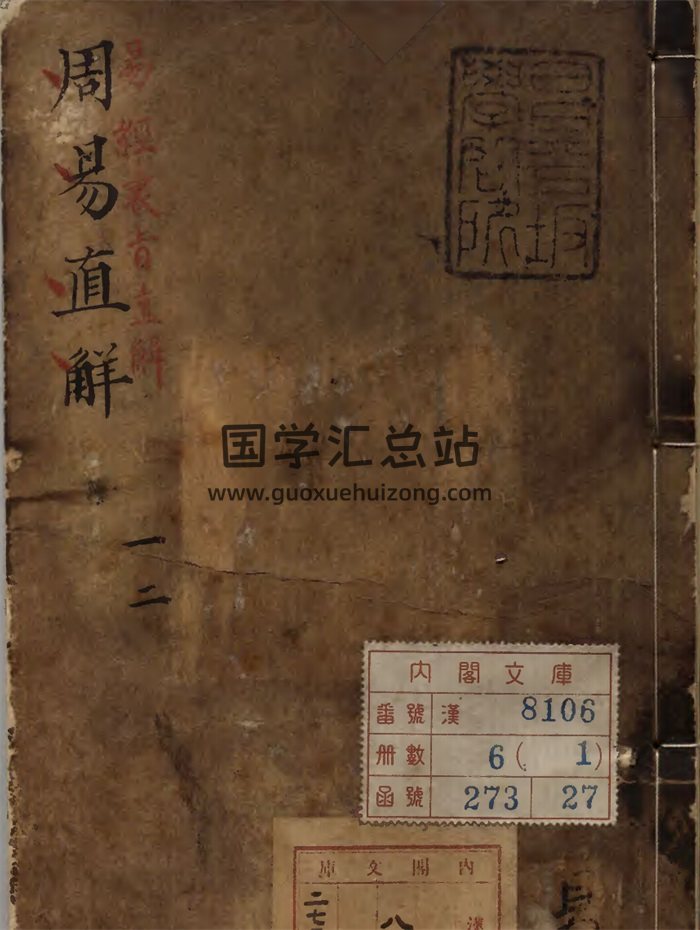 周易直解
易經衷旨直解
一
二
昌平坂
學問所
国学汇总站
www.guoxuehuizong.com
内閣文庫
番號 漢 8106
册數 6(1)
函號 273 27
内閣文庫
漢
八
二七